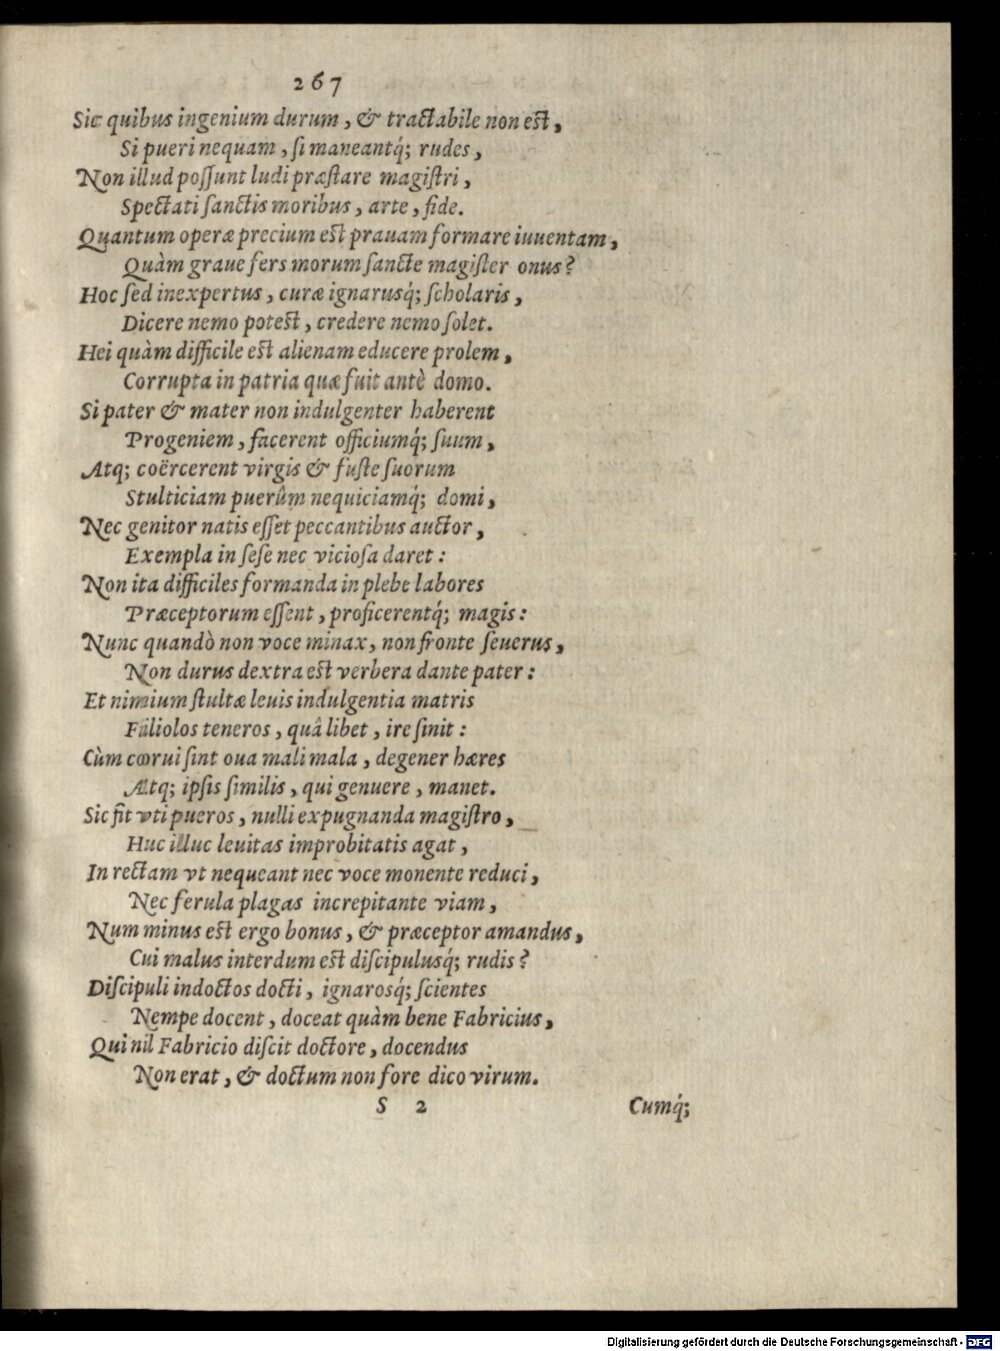 267
Sic quibus ingenium durum, & tractabile non est,
Si pueri nequam, si maneantq́; rudes,
Non illud possunt ludi præstare magistri,
Spectati sanctis moribus, arte, fide.
Quantum operæ precium est prauam formare iuuentam,
Quàm graue fers morum sancte magister onus?
Hoc sed inexpertus, curæ ignarusq́; scholaris,
Dicere nemo potest, credere nemo solet.
Hei quàm difficile est alienam educere prolem,
Corrupta in patria quæ fuit antè domo.
Si pater & mater non indulgenter haberent
Progeniem, facerent officiumq́; suum,
Atq; coërcerent virgis & fuste suorum
Stulticiam puerûm nequiciamq́; domi,
Nec genitor natis esset peccantibus auctor,
Exempla in sese nec viciosa daret:
Non ita difficiles formanda in plebe labores
Præceptorum essent, proficerentq́; magis:
Nunc quandò non voce minax, non fronte seuerus,
Non durus dextra est verbera dante pater:
Et nimium stultæ leuis indulgentia matris
Filiolos teneros, quâ libet, ire sinit:
Cùm corui sint oua mali mala, degener hæres
Atq; ipsis similis, qui genuere, manet.
Sic fit vti pueros, nulli expugnanda magistro,
Huc illuc leuitas improbitatis agat,
In rectam vt nequeant nec voce monente reduci,
Nec ferula plagas increpitante viam,
Num minus est ergo bonus, & præceptor amandus,
Cui malus interdum est discipulusq́; rudis?
Discipuli indoctos docti, ignarosq́; scientes
Nempe docent, doceat quàm bene Fabricius,
Qui nil Fabricio discit doctore, docendus
Non erat, & doctum non fore dico virum.
S 2 Cumq́;
Digitalisierung gefördert durch die Deutsche Forschungsgemeinschaft - DFG